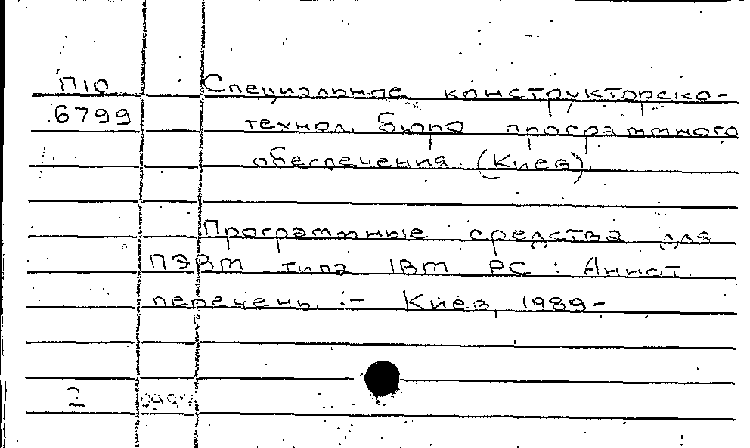 П10 Специальное конструкторско-
6799 технол. бюро программного
обеспечения (Киев)
Программные средства для
ПЭВМ типа IBM PC : Аннот.
перечень. – Киев, 1989 –
2